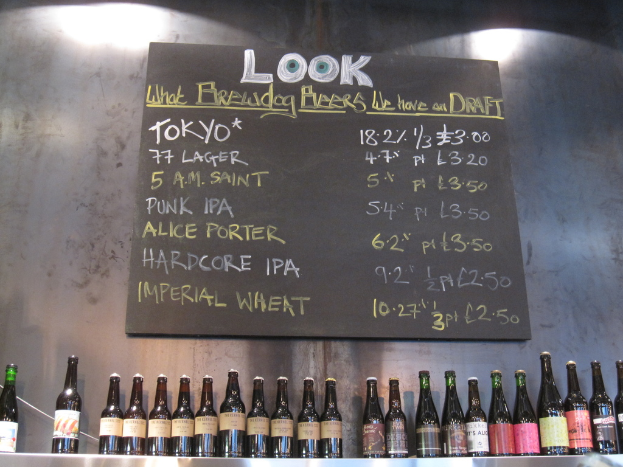 LOOK
What Brewdog Beers We have on DRAFT
TOKYO* 18.2% 1/3 £3.00
77 LAGER 4.7% pt £3.20
5 A.M. SAINT 5% pt £3.50
PUNK IPA 5.4% pt £3.50
ALICE PORTER 6.2% pt £3.50
HARDCORE IPA 9.2% 1/2 pt £2.50
IMPERIAL WHEAT 10.27% 1/3 pt £2.50